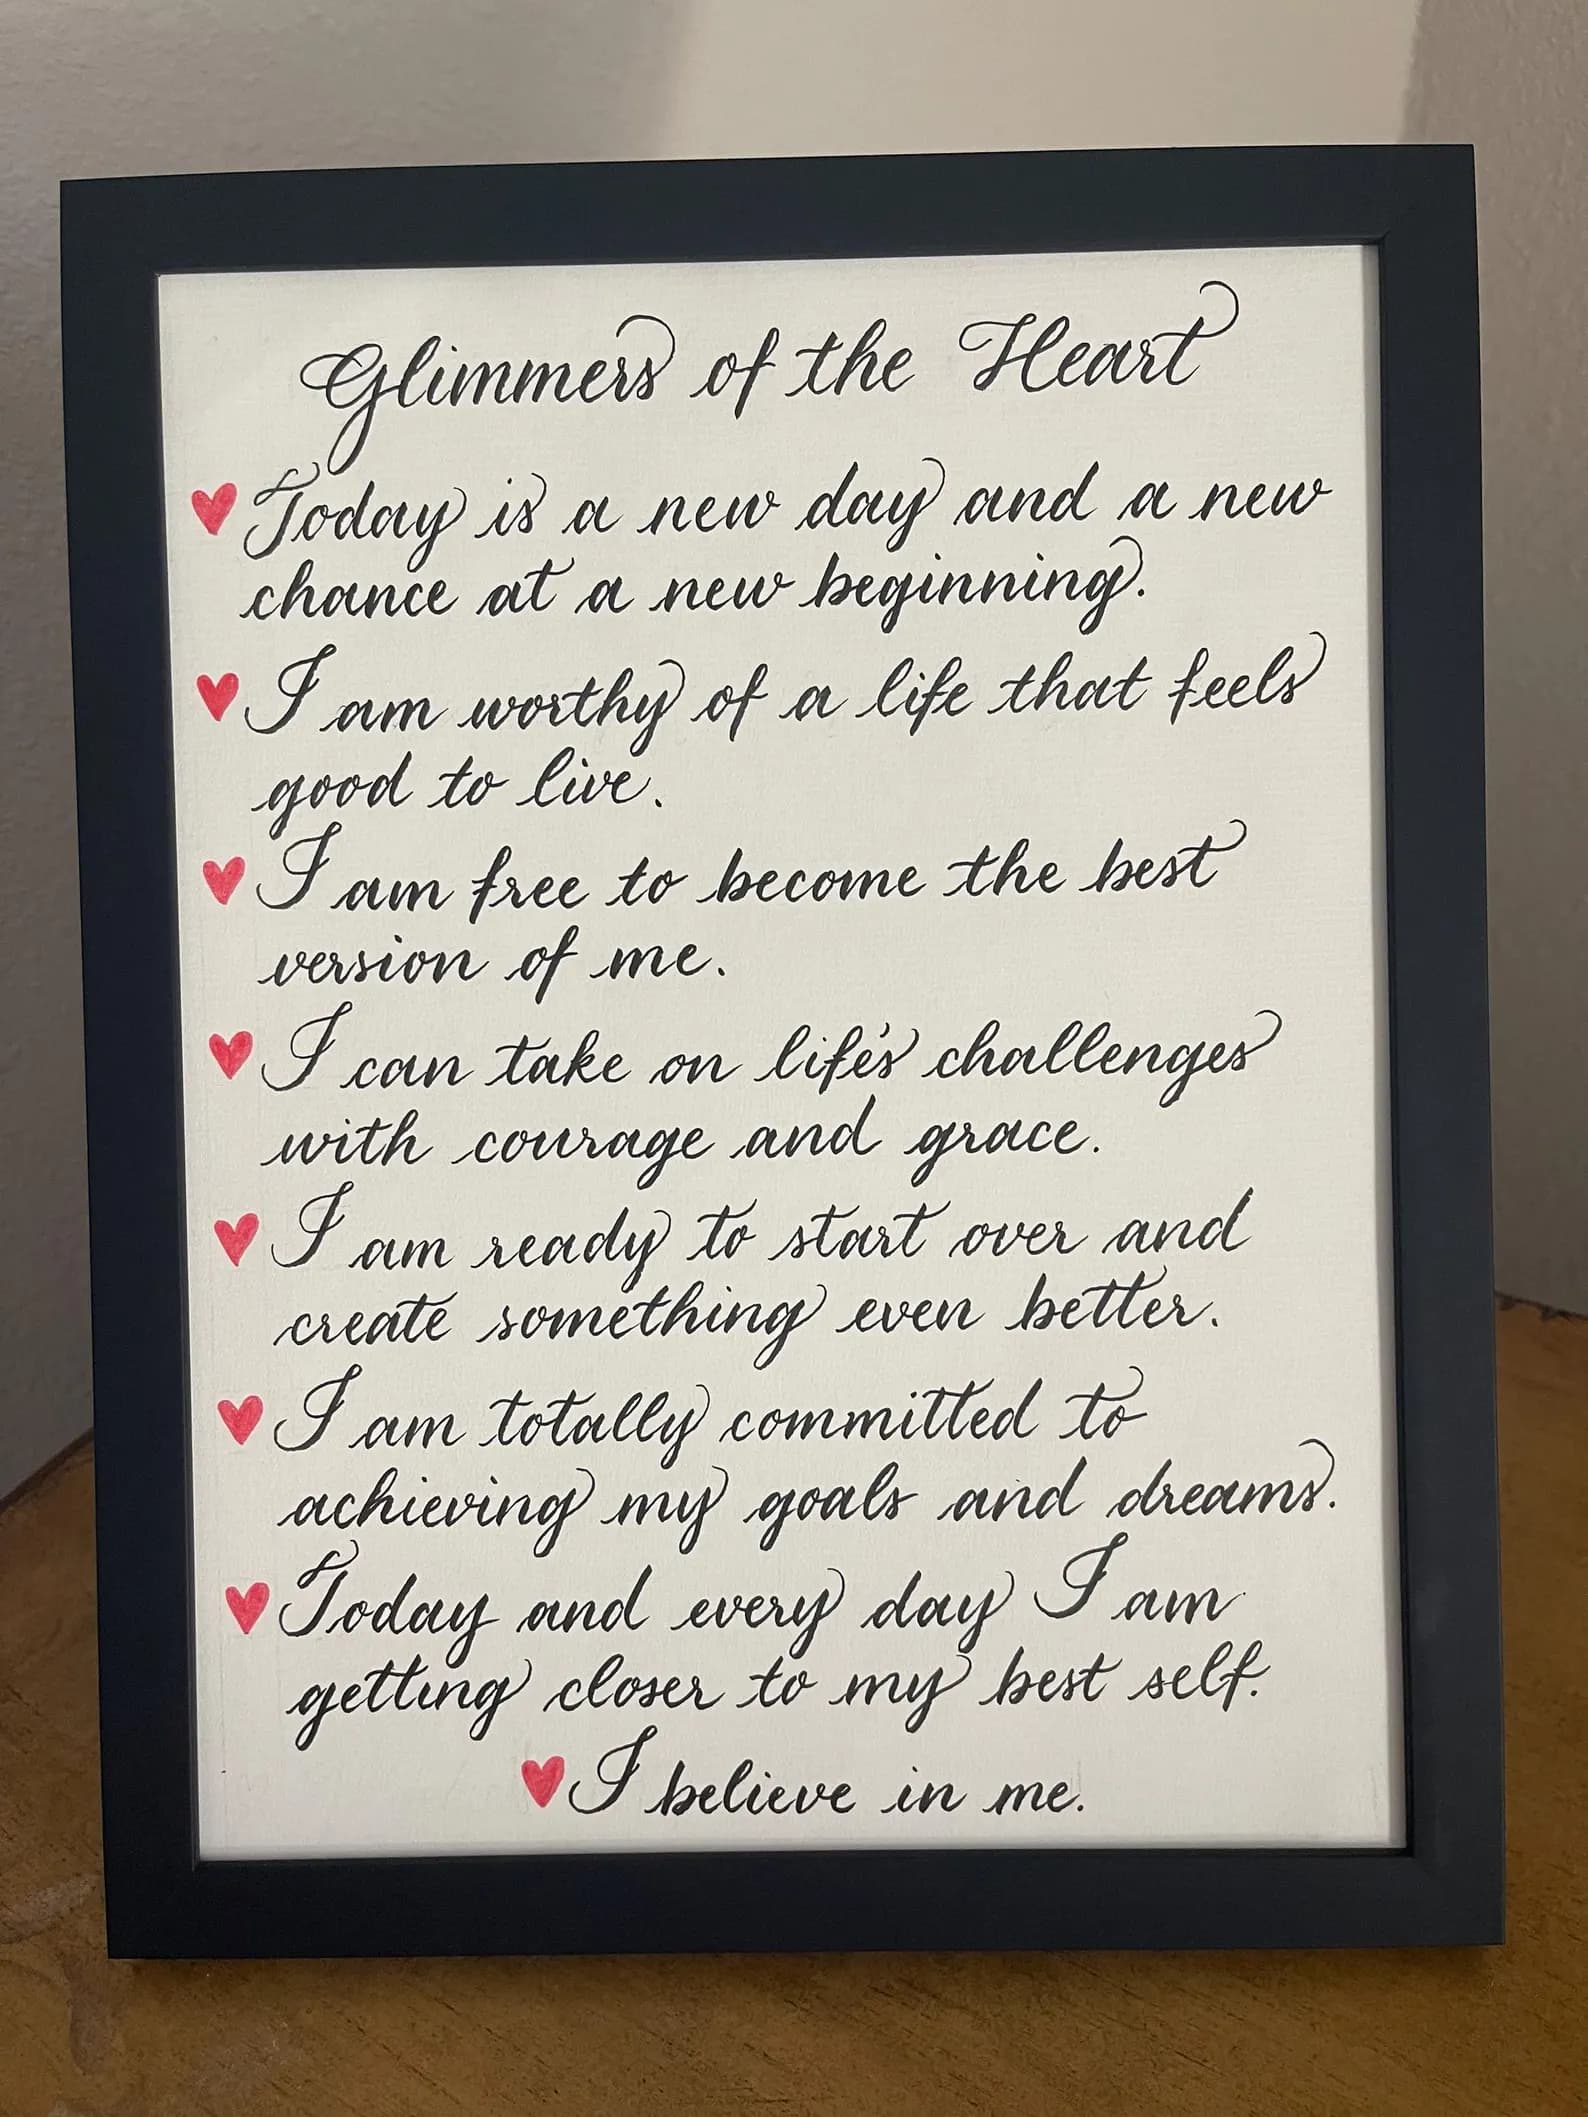 Glimmers of the Heart
Today is a new day and a new
chance at a new beginning.
I am worthy of a life that feels
good to live.
I am free to become the best
version of me.
I can take on life's challenges
with courage and grace.
I am ready to start over and
create something even better.
I am totally committed to
achieving my goals and dreams.
Today and every day I am
getting closer to my best self.
I believe in me.